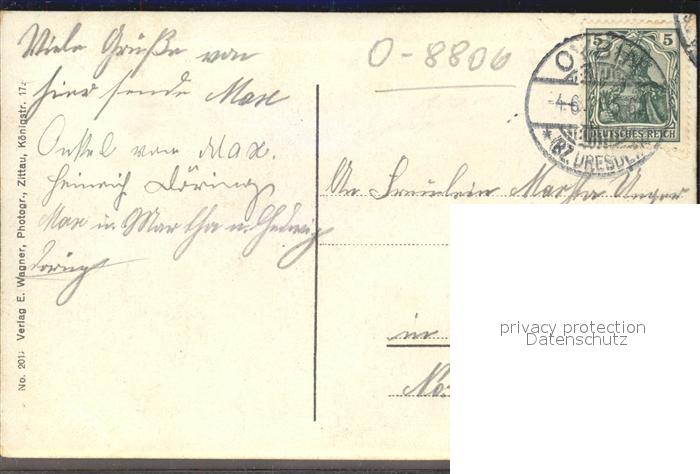 Viele Grüße von
hier sende Max
Onkel von Max.
Heinrich Döring
Max u. Martha u. Hedwig
Döring
O-8806
5 5
DEUTSCHES REICH
OYBIN
-4.6.
*(BZ. DRESDEN)
An Fräulein Martha Unger
in
No. 201 Verlag E. Wagner, Photogr., Zittau, Königstr. 17
privacy protection
Datenschutz